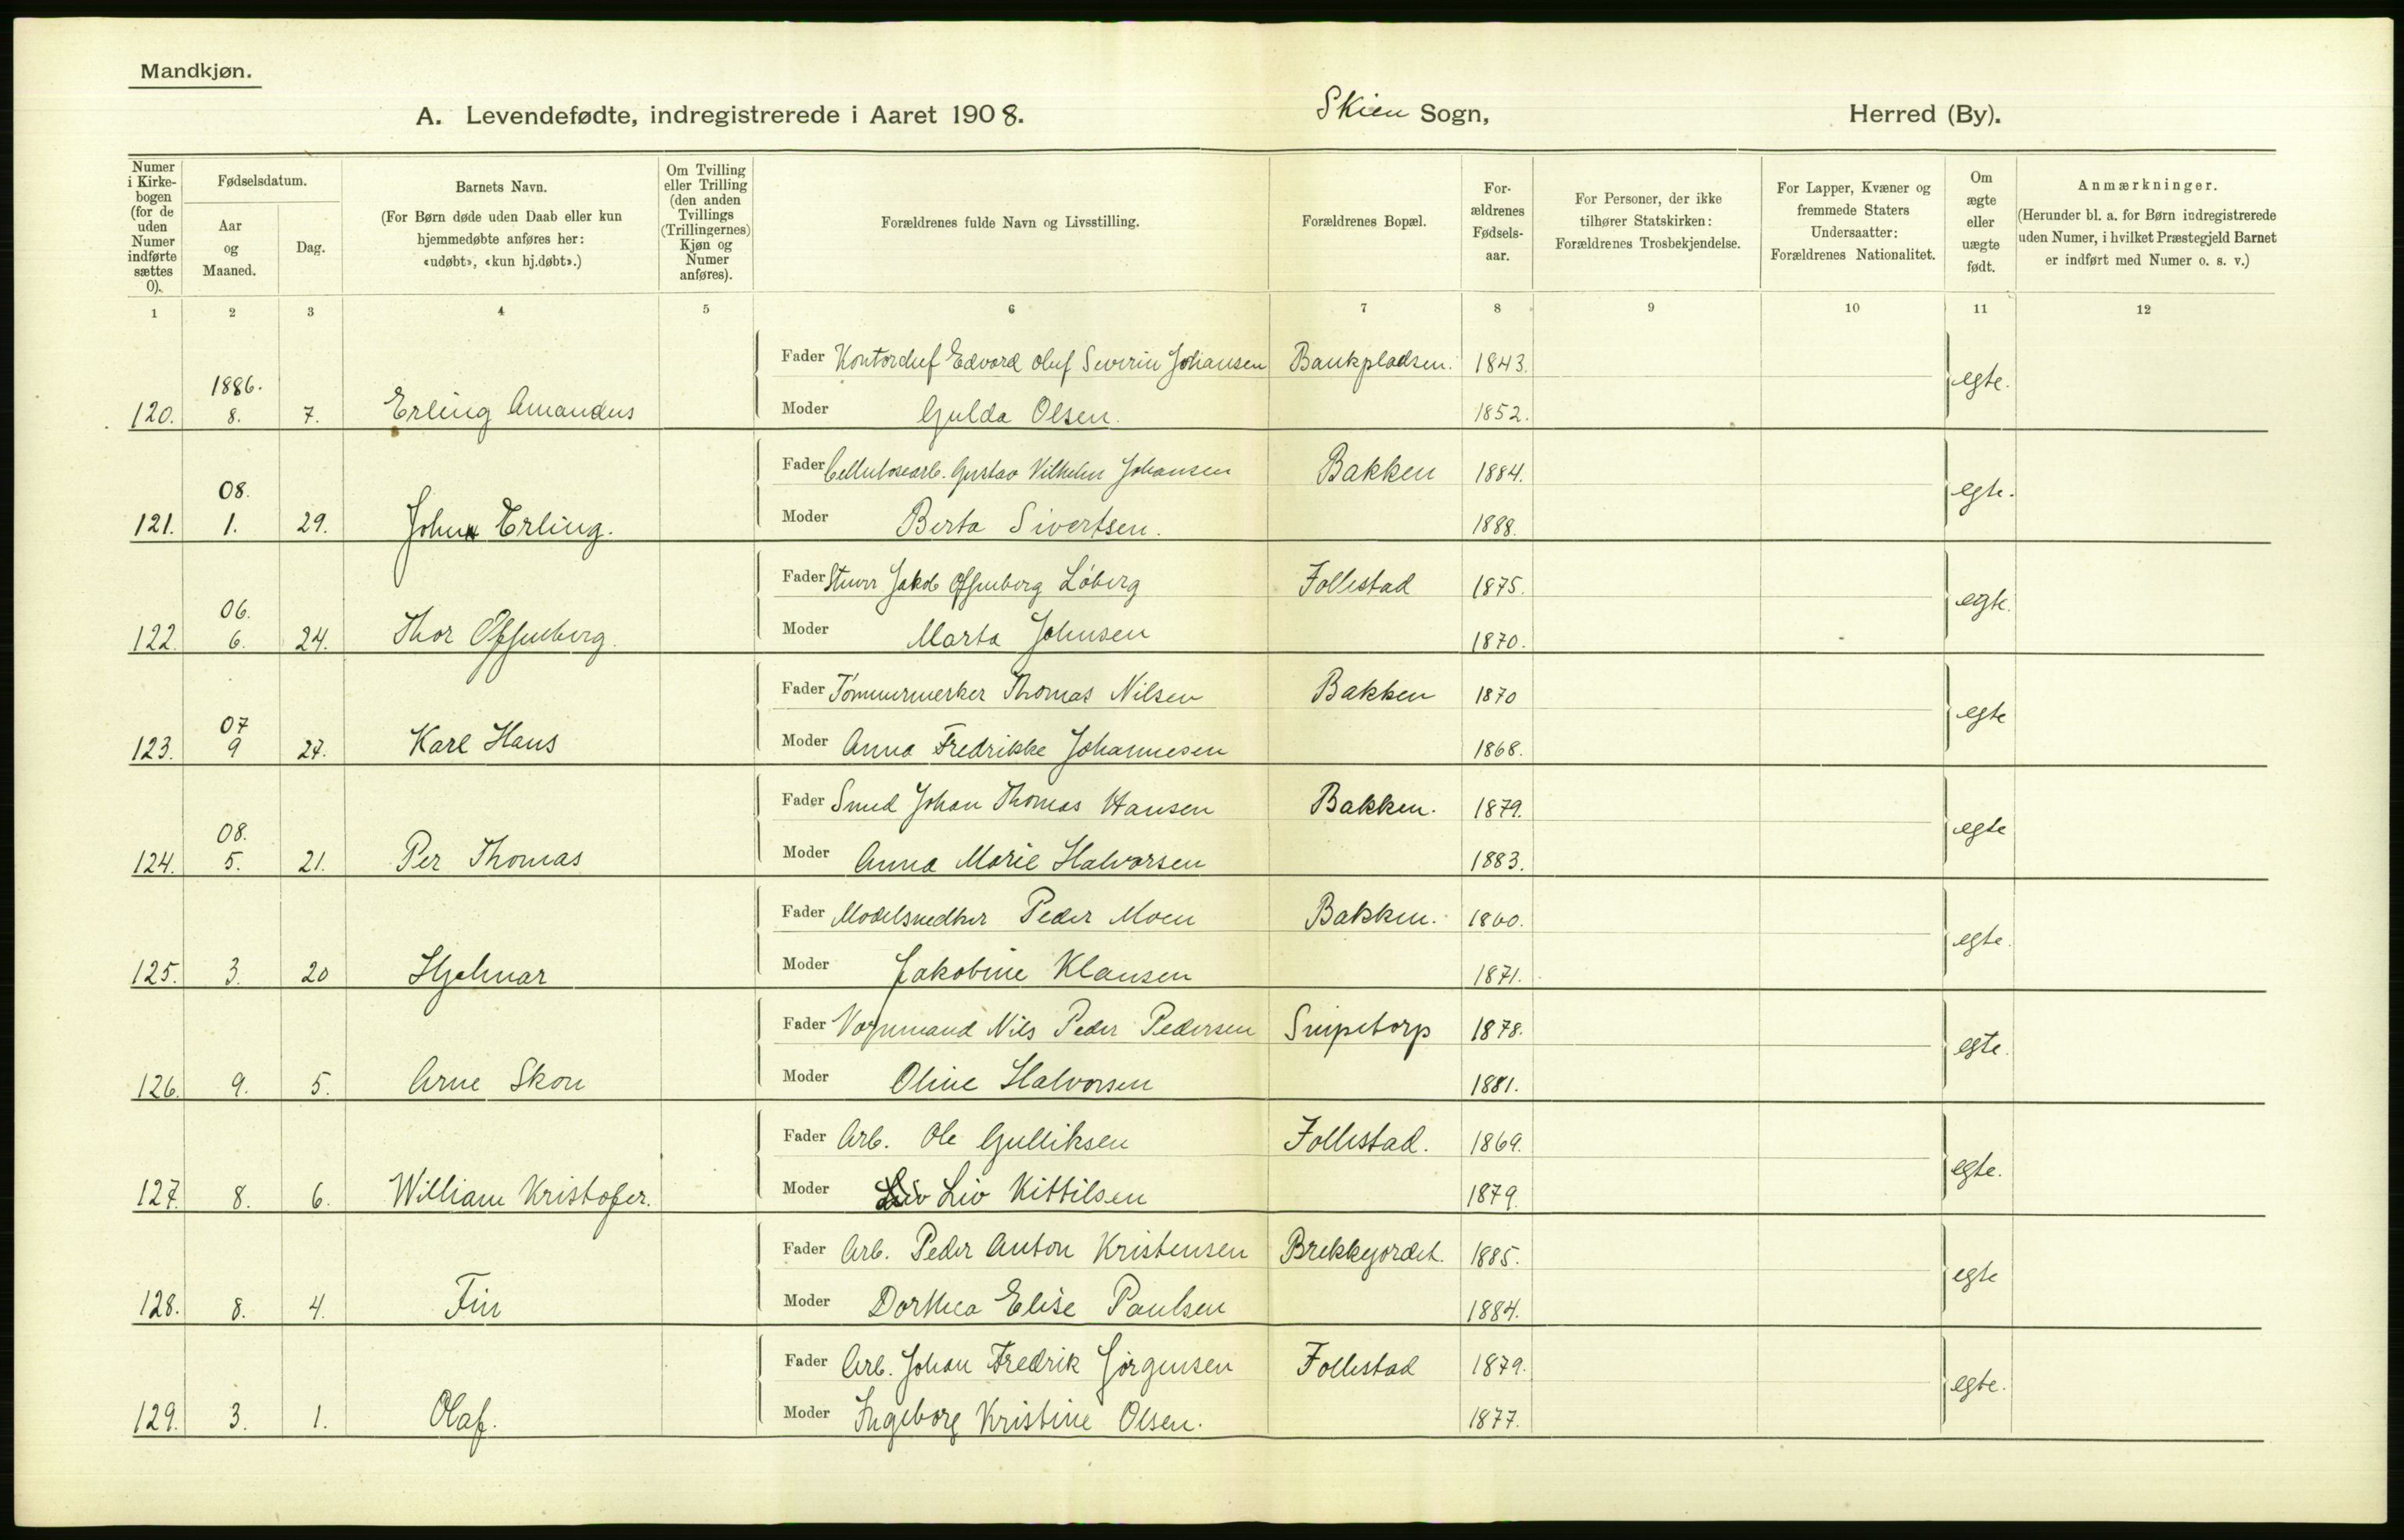 Mandkjøn.
A. Levendefødte, indregistrerede i Aaret 1908. Skien Sogn, Herred (By).
Numer i Kirkebogen (for de uden Numer indførte sættes 0).
Fødselsdatum.
Aar og Maaned.
Dag.
Barnets Navn.
(For Børn døde uden Daab eller kun hjemmedøbte anføres her: «udøbt», «kun hj.døbt».)
Om Tvilling eller Trilling (den anden Tvillings (Trillingernes) Kjøn og Numer anføres).
Forældrenes fulde Navn og Livsstilling.
Forældrenes Bopæl.
Forældrenes Fødselsaar.
For Personer, der ikke tilhører Statskirken: Forældrenes Trosbekjendelse.
For Lapper, Kvæner og fremmede Staters Undersaatter: Forældrenes Nationalitet.
Om ægte eller uægte født.
Anmærkninger.
(Herunder bl. a. for Børn indregistrerede uden Numer, i hvilket Præstegjeld Barnet er indført med Numer o. s. v.)
1 2 3 4 5 6 7 8 9 10 11 12
Fader Kontorchef Edvard Oluf Severin Johansen Bankpladsen. 1843.
1886. egte.
120. 8. 7. Erling Amandus Moder Gulda Olsen. 1852.
Fader Cellulosearb. Gustav Vilhelm Johansen Bakken 1884.
08. egte.
121. 1. 29. John Erling. Moder Berta Sivertsen. 1888.
Fader Stuer Jakob Offenberg Løberg Follestad 1875.
06. egte.
122. 6. 24. Thor Offenberg. Moder Marta Johnsen 1870.
Fader Tømmermerker Thomas Nilsen Bakken 1870
07 egte
123. 9 27. Karl Hans Moder Anna Fredrikke Johannesen 1868.
Fader Smed Johan Thomas Hansen Bakken. 1879.
08. egte
124. 5. 21. Per Thomas Moder Anna Marie Halvorsen 1883.
Fader Modelsnedker Peder Moen Bakken. 1860.
egte.
125. 3. 20 Hjalmar Moder Jakobine Klausen 1871.
Fader Vognmand Nils Peder Pedersen Snipetorp 1878.
egte.
126. 9. 5. Arne Skon Moder Oline Halvorsen 1881.
Fader Arb. Ole Gulliksen Follestad. 1869.
egte.
127. 8. 6. William Kristofer. Moder Liv Kittilsen 1879.
Fader Arb. Peder Anton Kristensen Brekkejordet. 1885.
egte
128. 8. 4. Fin Moder Dorthea Elise Paulsen 1884.
Fader Arb. Johan Fredrik Jørgensen Follestad 1879.
egte.
129. 3. 1. Olaf. Moder Ingeborg Kristine Olsen. 1877.